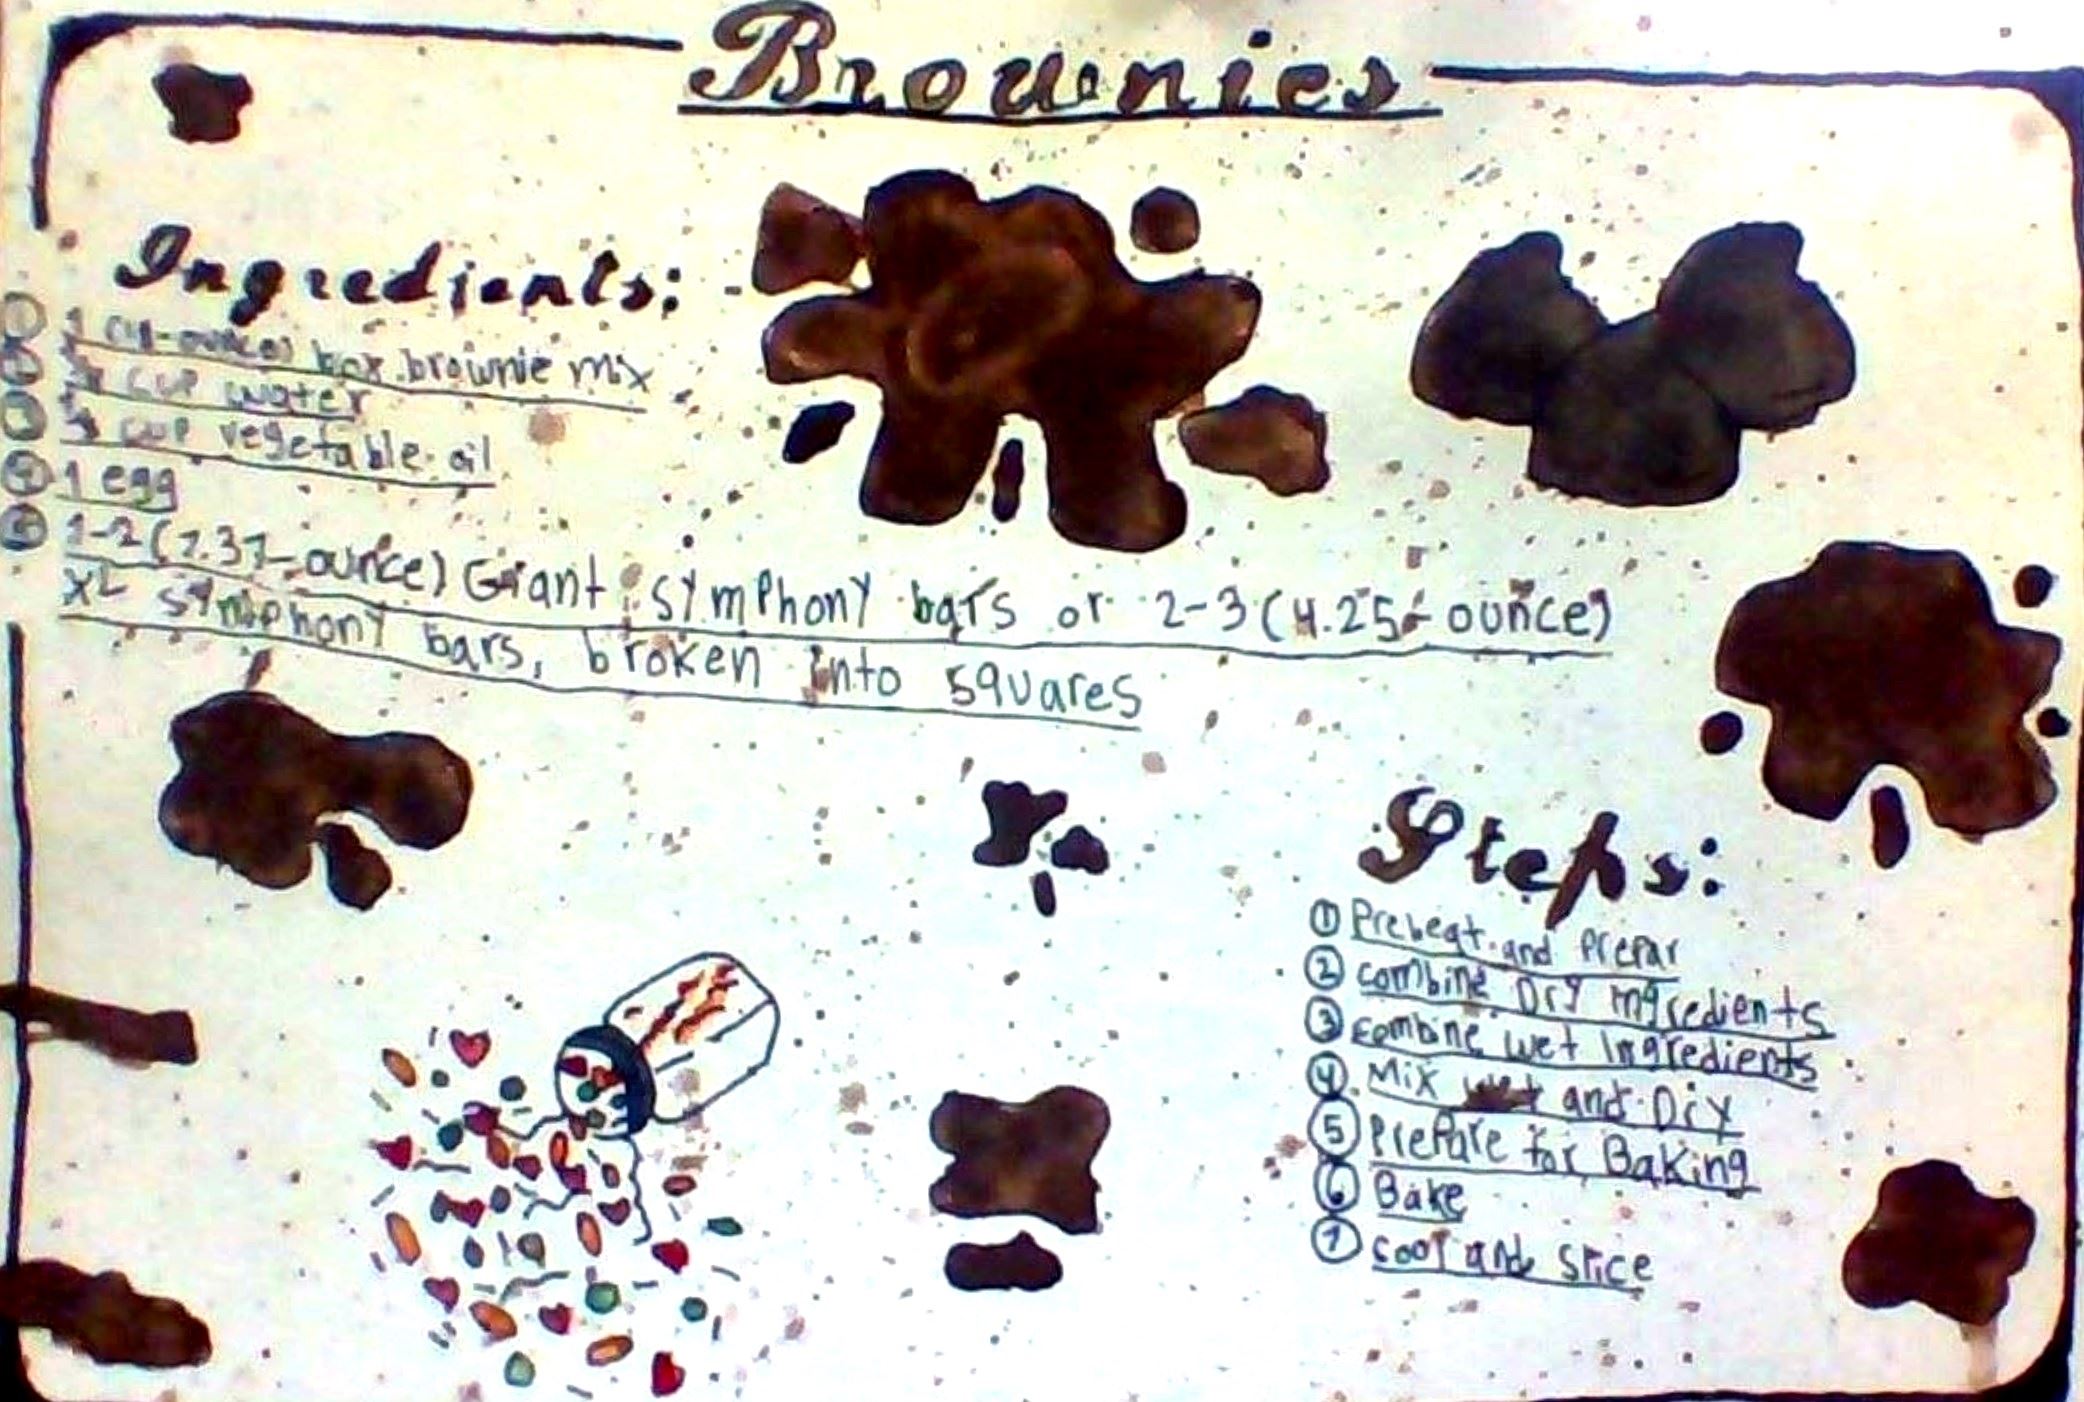 Brownies
Ingredients:
box brownie mix
cup water
cup vegetable oil
④ 1 egg
⑤ 1-2 (7.37-ounce) Giant symphony bars or 2-3 (4.25-ounce)
XL symphony bars, broken into squares
Steps:
① Preheat and Prepar
② combine Dry ingredients
③ combine wet Ingredients
④ Mix wet and Dry
⑤ Prepare for Baking
⑥ Bake
⑦ cool and slice